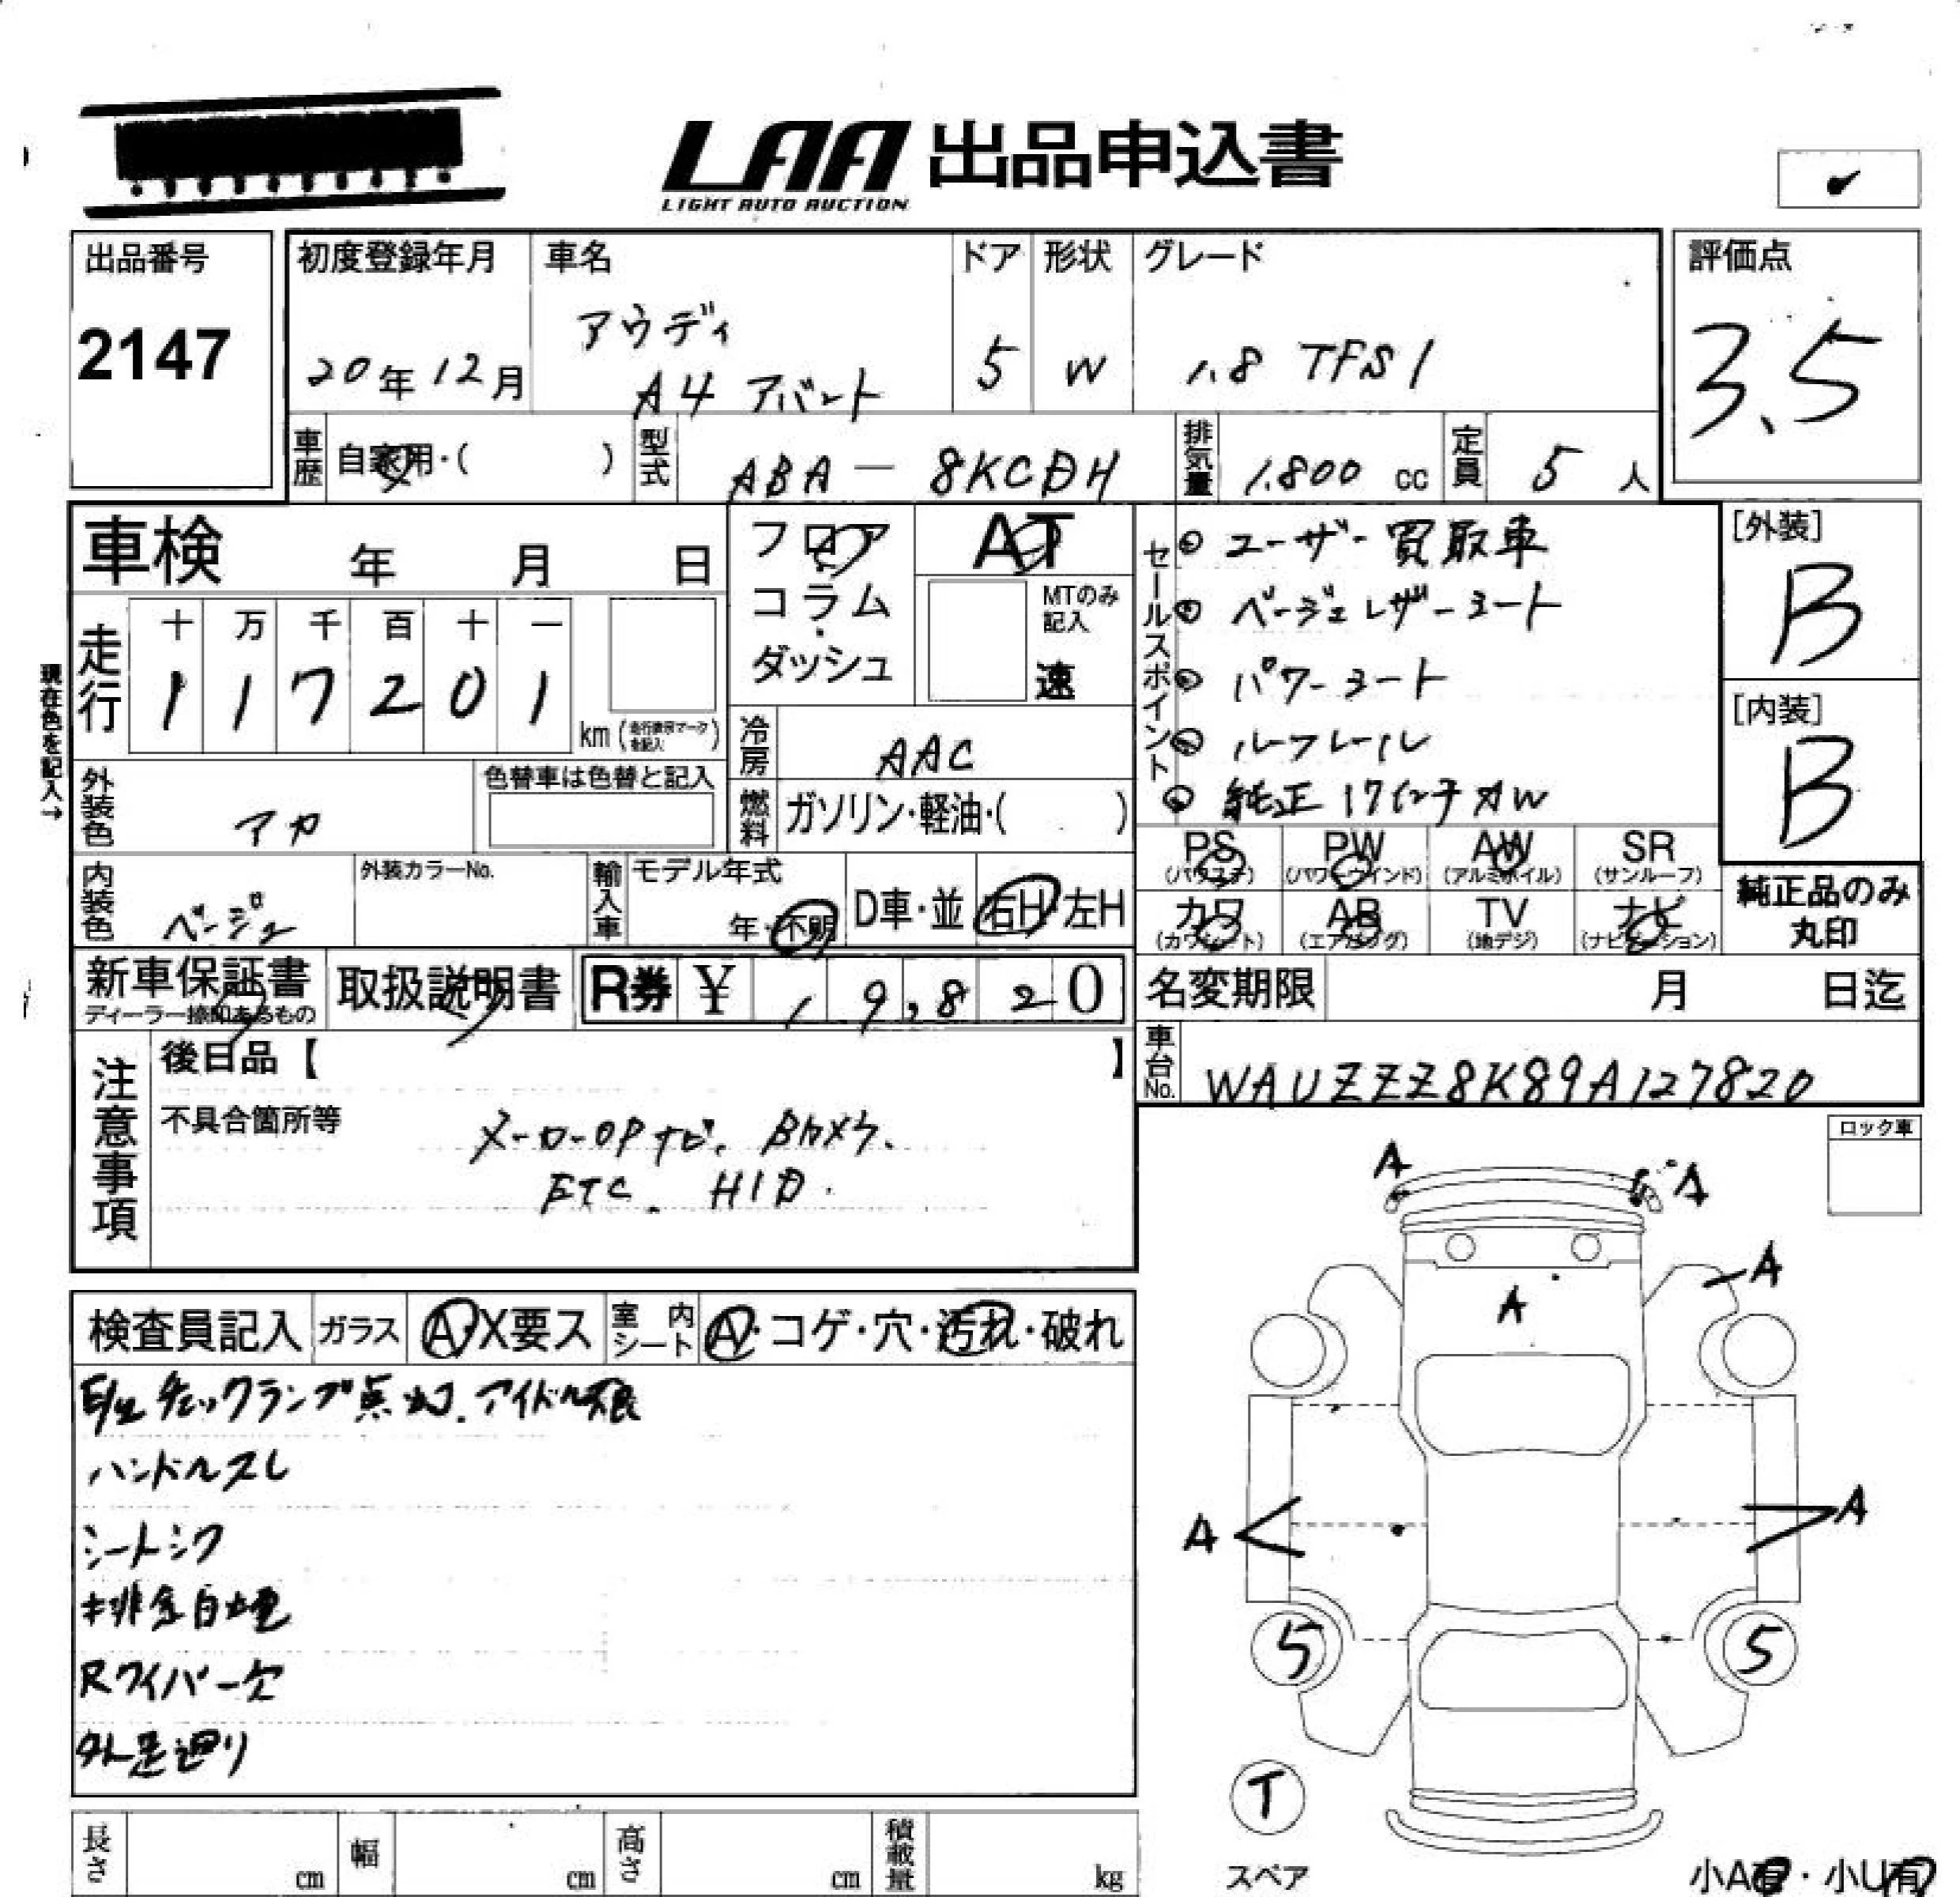 LAA 出品申込書
LIGHT AUTO AUCTION
出品番号
2147
初度登録年月
20年12月
車名
アウディ
A4 アバント
ドア
5
形状
W
グレード
1.8 TFSI
評価点
3.5
車歴
自家用・( )
型式
ABA - 8KCDH
排気量
1.800 cc
定員
5 人
車検 年 月 日
走行
十 万 千 百 十 一
1 1 7 2 0 1
km (走行表示マークを記入)
現在色を記入→
フロア
コラム
ダッシュ
AT
MTのみ記入
速
冷房
AAC
燃料
ガソリン・軽油・( )
外装色
アカ
色替車は色替と記入
内装色
ベージュ
外装カラーNo.
輸入車
モデル年式
年・不明
D車・並
右H・左H
セールスポイント
ユーザー買取車
ベージュレザーシート
パワーシート
ルーフレール
純正17インチAW
[外装]
B
[内装]
B
PS (パワステ)
PW (パワーウインド)
AW (アルミホイル)
SR (サンルーフ)
カワ (カワシート)
AB (エアバッグ)
TV (地デジ)
ナビ (ナビゲーション)
純正品のみ
丸印
新車保証書
ディーラー捺印あるもの
取扱説明書
R券 ¥ 1 9,8 2 0
名変期限 月 日迄
車台No.
WAUZZZ8K89A127820
注意事項
後日品【 】
不具合箇所等
メーカーOPナビ. Bカメラ.
ETC. HID.
ロック車
検査員記入
ガラス
A・X要ス
室内シート
A・コゲ・穴・汚れ・破れ
E/gチェックランプ点灯. アイドル不良
ハンドルスレ
シートシワ
排気白煙
Rワイパー欠
外足廻り
A
A
A
A
A
A
5
5
T
スペア
小A有・小U有
長さ cm
幅 cm
高さ cm
積載量 kg